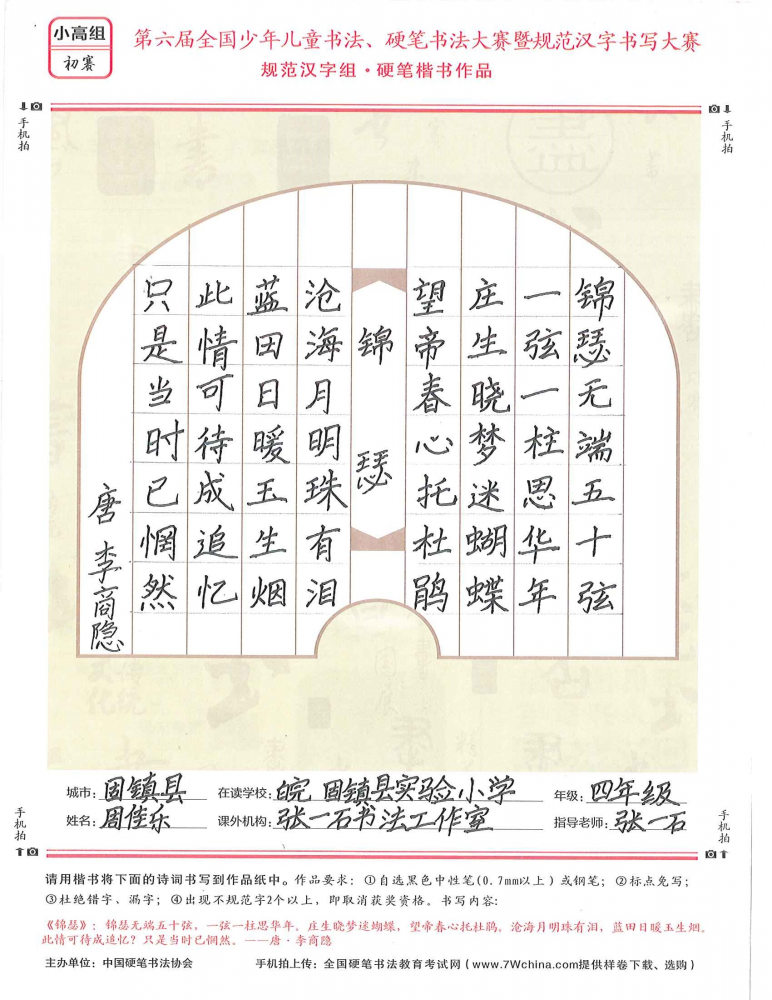 小高组
初赛
第六届全国少年儿童书法、硬笔书法大赛暨规范汉字书写大赛
规范汉字组·硬笔楷书作品
手机拍
手机拍
锦瑟无端五十弦
一弦一柱思华年
庄生晓梦迷蝴蝶
望帝春心托杜鹃
锦瑟
沧海月明珠有泪
蓝田日暖玉生烟
此情可待成追忆
只是当时已惘然
唐 李商隐
城市：固镇县 在读学校：皖 固镇县实验小学 年级：四年级
姓名：周佳乐 课外机构：张一石书法工作室 指导老师：张一石
手机拍
手机拍
请用楷书将下面的诗词书写到作品纸中。作品要求：①自选黑色中性笔(0.7mm以上）或钢笔；②标点免写；
③杜绝错字、漏字；④出现不规范字2个以上，即取消获奖资格。书写内容：
《锦瑟》：锦瑟无端五十弦，一弦一柱思华年。庄生晓梦迷蝴蝶，望帝春心托杜鹃。沧海月明珠有泪，蓝田日暖玉生烟。
此情可待成追忆？只是当时已惘然。——唐·李商隐
主办单位：中国硬笔书法协会 手机拍上传：全国硬笔书法教育考试网（www.7Wchina.com提供样卷下载、选购）